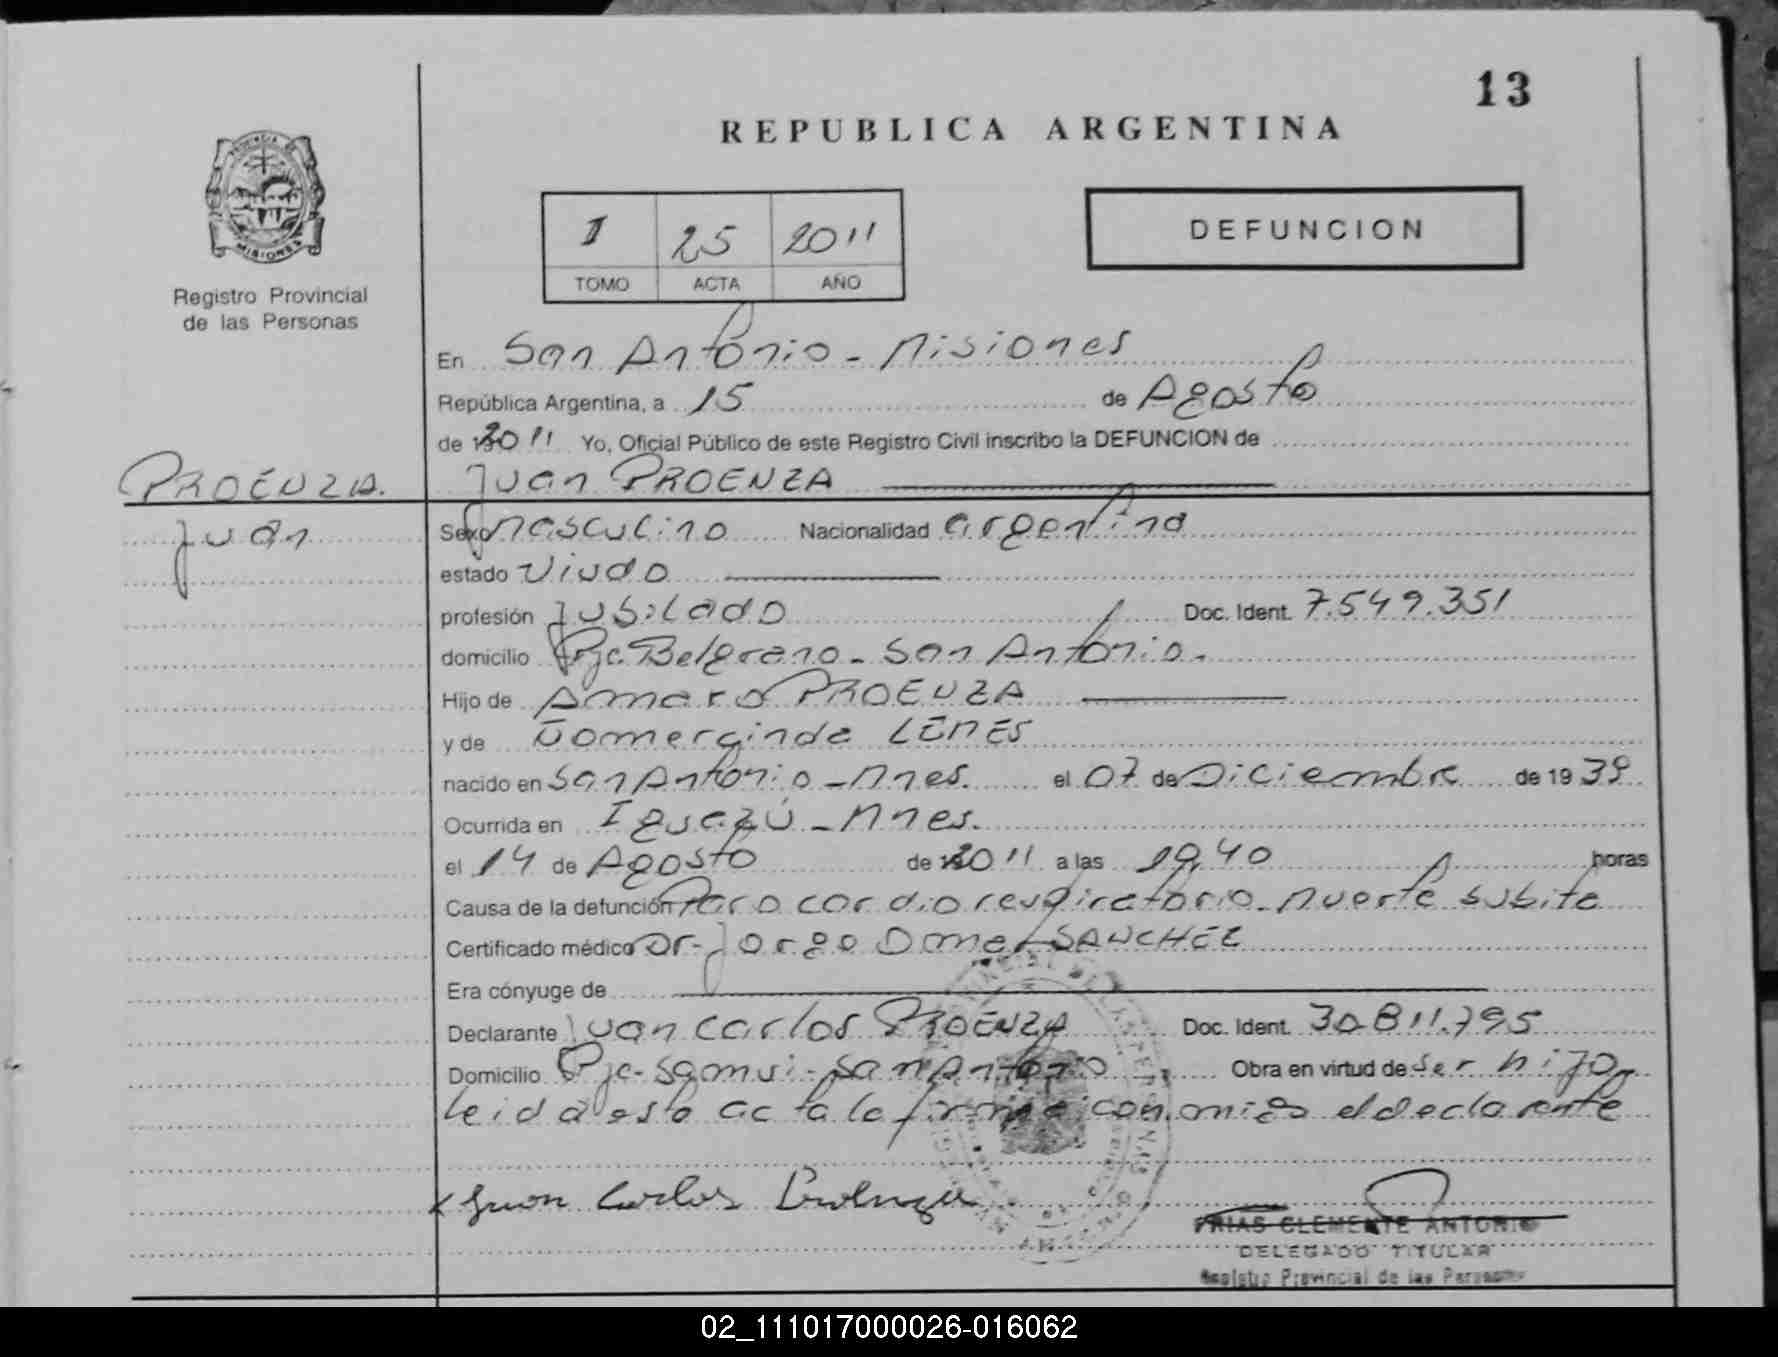 13
REPUBLICA ARGENTINA
PROVINCIA DE
MISIONES
Registro Provincial
de las Personas
1 25 2011
TOMO ACTA AÑO
DEFUNCION
En San Antonio - Misiones
República Argentina, a 15 de Agosto
de 2011 Yo, Oficial Público de este Registro Civil inscribo la DEFUNCION de
PROENZA. Juan PROENZA
Juan Sexo masculino Nacionalidad argentina
estado Viudo
profesión Jubilado Doc. Ident. 7.549.351
domicilio Pje. Belgrano - San Antonio.
Hijo de Amaro PROENZA
y de Gomercinda LEMES
nacido en San Antonio - Mnes. el 07 de Diciembre de 1939
Ocurrida en Iguazú - Mnes.
el 14 de Agosto de 2011 a las 19,40 horas
Causa de la defunción Paro cardiorespiratorio - Muerte subita
Certificado médico Dr. Jorge SANCHEZ
Era cónyuge de
Declarante Juan Carlos PROENZA Doc. Ident. 30.811.795
Domicilio Pje - San Antonio Obra en virtud de ser hijo
leida esta acta la firma con migo el declarante
Juan Carlos Proenza
FRIAS CLEMENTE ANTONIO
DELEGADO TITULAR
Registro Provincial de las Personas
02_111017000026-016062